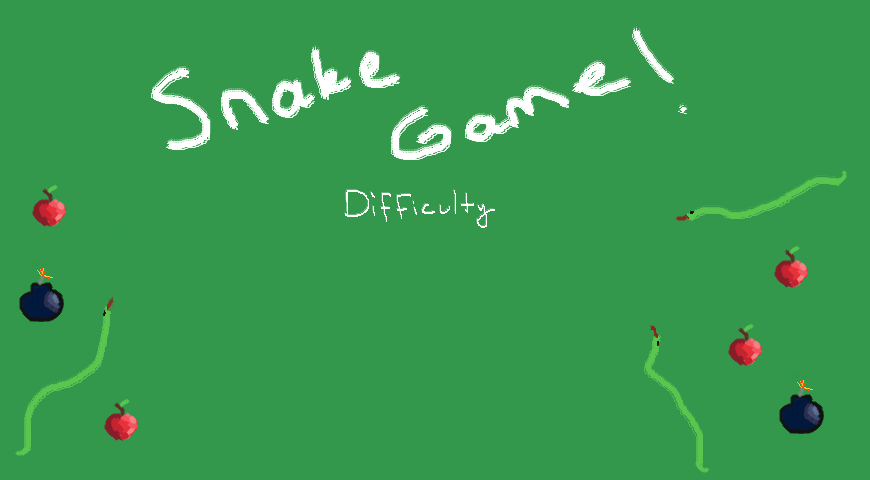 Snake
Game!
Difficulty